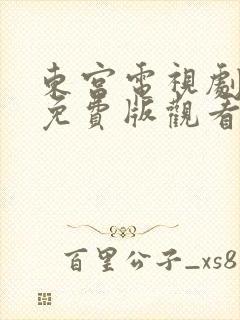 東宮電視劇
免費版觀看
百里公子_xs8